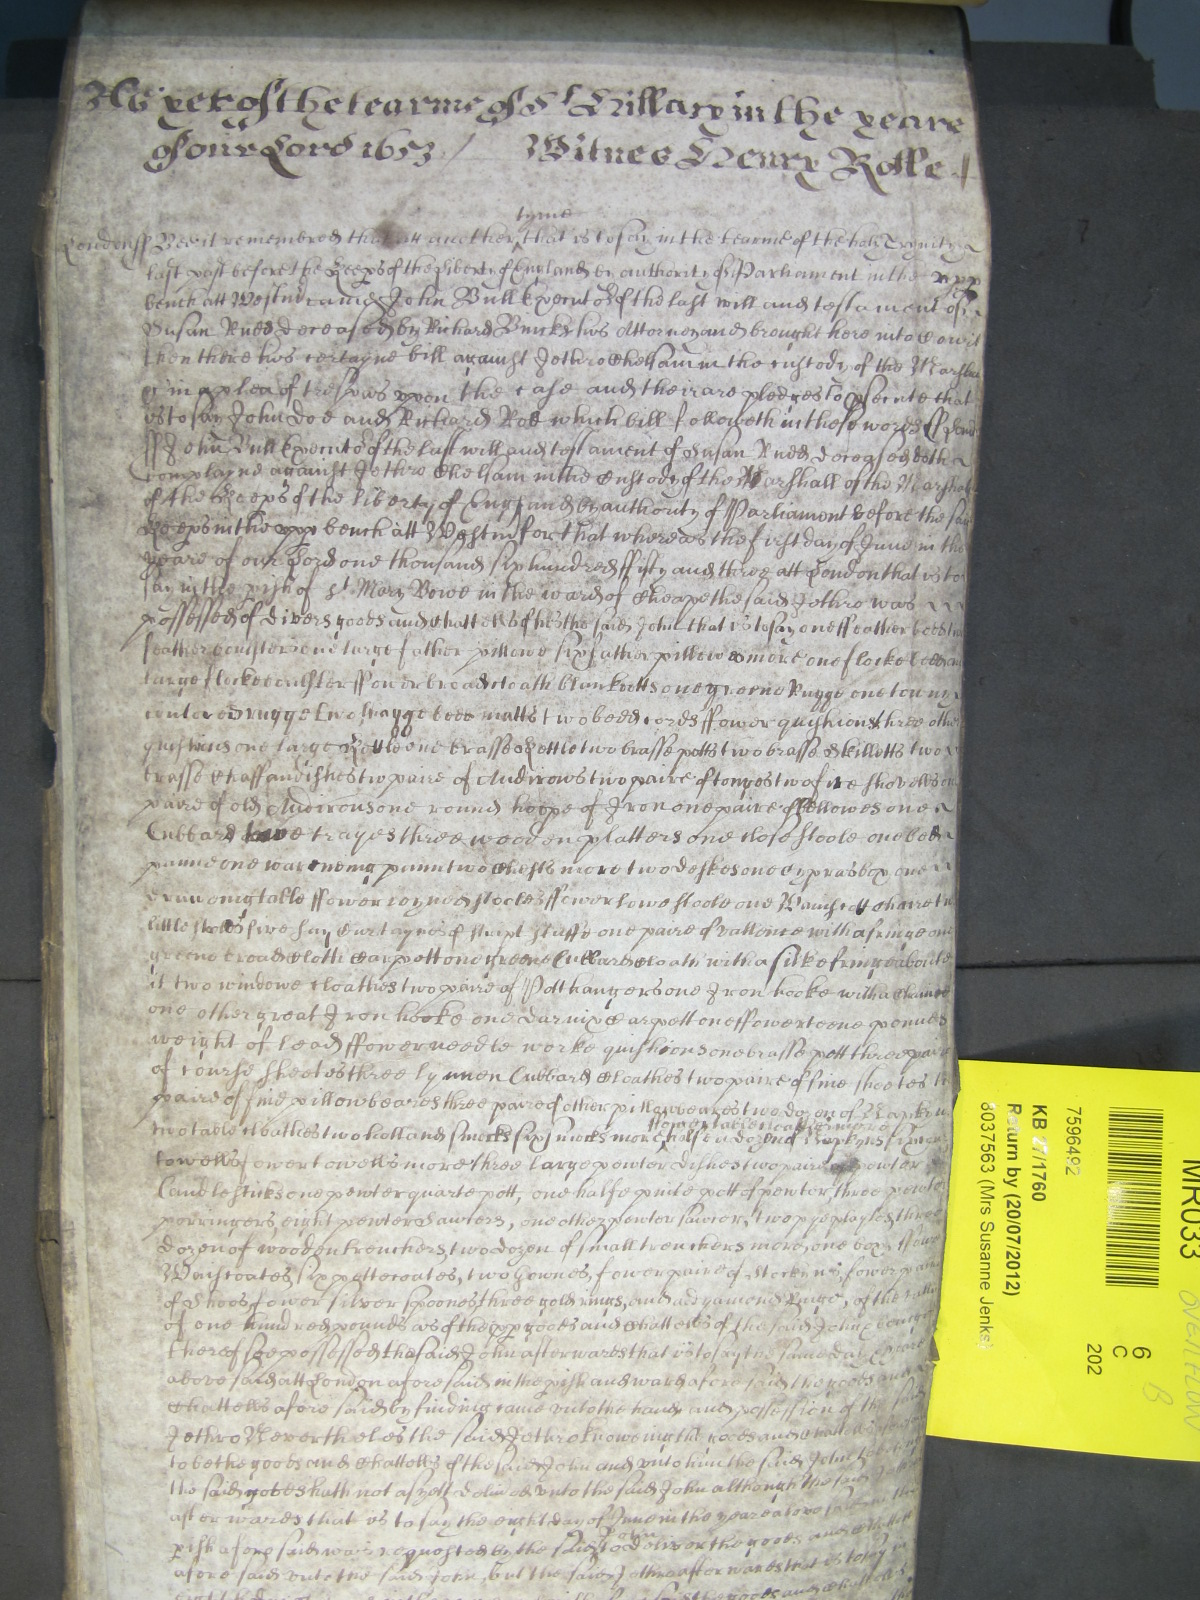 yet of the tearme of St Hillary in the yeare
of our Lord 1653 / Witnes Henry Rolle
tyme
London ss Bee it remembred that att another that is to say in the tearme of the holy Trynity
last past before the Keeps of the liberty of England by authority of Parliament in the upp
bench att Westm came John Bull Executor of the last will and testament of
Susan Rudd deceased by Richard his Attorney and brought here into Court
then there his certayne bill against Jethro in the custody of the Marshall
in a plea of trespas upon the case and their are pledges to psecute that
is to say John Doe and Richard Roe which bill followeth in these words ss
ss John Bull Executor of the last will and testament of Susan Rudd deceased doth
complayne against Jethro in the custody of the Marshall of the Marshal
of the Keeps of the liberty of England by authority of Parliament before the said
Keeps in the upp bench att Westm for that whereas the first day of June in the
yeare of our Lord one thousand six hundred fifty and three att London that is to
say in the pish of St Mary Bowe in the ward of Cheape the said Jethro was
possessed of divers goods and chattells of his the said John that is to say one ffeather bedd
feather boulster one large feather pillowe six feather pillowes more one flocke bedd
large flocke boulster ffower broadcloath blanketts one greene Rugge one tawny
coulored rugge two bedd matts two bedd cords ffower quishions three other
quishions one large Kettle one brasse Kettle two brasse potts two brasse Skilletts two
brasse Chaffandishes two paire of Andirons two paire of tonges two fire shovells one
paire of old Andirons one round hoope of Iron one paire of Bellowes one
Cubbard trayes three wooden platters one close stoole one bedd
panne one warmeing pann two Chests more two deskes one Cypras box one
draweing table ffower joyned stooles ffower lowe stoole one Wainscott chaire
little stooles five say Curtaynes of stript stuffe one paire of vallence with a fringe one
greene broadcloth Carpett one greene Cubbard Cloath with a silke fringe aboute
it two windowe cloathes two paire of Potthangers one Iron hooke with a Chaine
one other great Iron hooke one darnix Carpett one ffowerteene pounds
weight of lead ffower needle worke quishions one brasse pott three paire
of course sheetes three lynnen Cubbard Cloathes two paire of fine sheetes
paire of fine pillowbeares three paire of other pillowbeares two dozen of Napkins
ffower tablecloathes more
two tablecloathes two holland smocks six smocks more halfe a dozen of Napkyns
towells fower towells more three large pewter dishes two paire of pewter
Candlesticks one pewter quarte pott, one halfe pinte pott of pewter, three pewter
porringers, eight pewter sawcers, one other pewter sawcer, two pye plates three
dozen of wooden trenchers two dozen of small trenchers more, one box
Waistcoates, six pettecoates, two Gownes, fower paire of Stockyns, fower paire
of Shooes fower silver spoones three gold rings, and a dyamond Ringe, of the value
of one hundred pounds as of the pp goods and Chattells of the said John & being
thereof soe possessed the said John afterwards that is to say the same day & yeare
abovesaid att London aforesaid in the pish and ward aforesaid the goods and
Chattells aforesaid by finding came unto the hands and possession of the said
Jethro Neverthelesse the said Jethro knoweing the goods and chattells aforesaid
to be the goods and Chattells of the said John and unto him the said John to
the said goods hath not as yett delivered unto the said John although the said Jethro
afterwards that is to say the eight day of June in the yeare abovesaid in the
John
pish aforesaid was requested by the said to deliver the goods and Chattells
aforesaid unto the said John, but the said Jethro afterwards that is to say
the goods and Chattells
MR033
OVERFLOW
B
6
C
202
7596492
KB 27/1760
Return by (20/07/2012)
8037563 (Mrs Susanne Jenks)